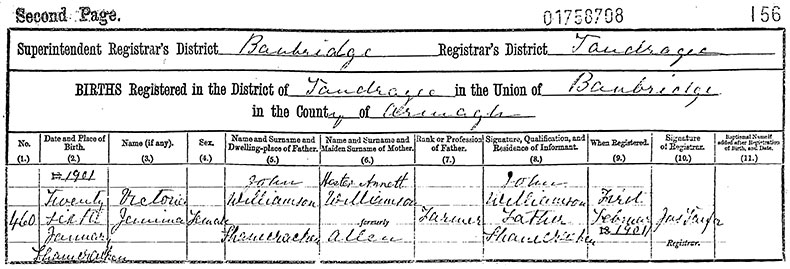 Second Page. 01758708 156
Superintendent Registrar's District Banbridge Registrar's District Tandragee
BIRTHS Registered in the District of Tandragee in the Union of Banbridge
in the County of Armagh
No. Date and Place of Birth. Name (if any). Sex. Name and Surname and Dwelling-place of Father. Name and Surname and Maiden Surname of Mother. Rank or Profession of Father. Signature, Qualification, and Residence of Informant. When Registered. Signature of Registrar. Baptismal Name if added after Registration of Birth, and Date.
(1.) (2.) (3.) (4.) (5.) (6.) (7.) (8.) (9.) (10.) (11.)
1901 John Hester Annett John
Twenty Victoria Williamson Williamson Williamson First
460 sixth Jemima Female formerly Farmer Father February Jas Taylor
January Shanecracken Allen Shanecracken 1901 Registrar.
Shanecracken